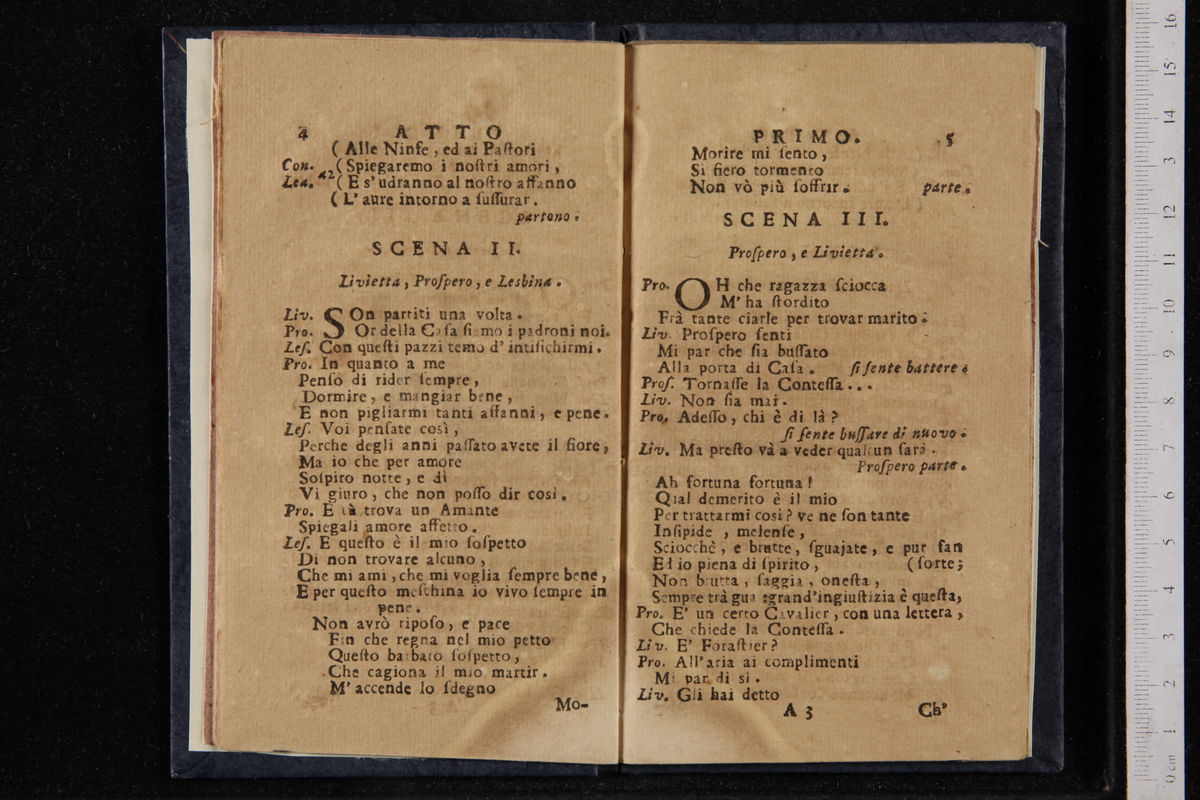 4 ATTO
( Alle Ninfe , ed ai Paſtori
Con. ( Spiegaremo i noſtri amori ,
Lea. a2 ( E s' udranno al noſtro affanno
( L' aure intorno a ſuſſurar .
partono .
SCENA II.
Livietta , Proſpero , e Lesbina .
Liv. SOn partiti una volta .
Pro. Or della Caſa ſiamo i padroni noi.
Leſ. Con queſti pazzi temo d' intiſichirmi .
Pro. In quanto a me
Penſo di rider ſempre ,
Dormire , e mangiar bene ,
E non pigliarmi tanti affanni , e pene .
Leſ. Voi penſate così ,
Perche degli anni paſſato avete il fiore ,
Ma io che per amore
Soſpiro notte , e dì
Vi giuro , che non poſſo dir così .
Pro. E tà trova un Amante
Spiegali amore affetto .
Leſ. E queſto è il mio ſoſpetto
Di non trovare alcuno ,
Che mi ami , che mi voglia ſempre bene ,
E per queſto meſchina io vivo ſempre in
pene .
Non avrò ripoſo , e pace
Fin che regna nel mio petto
Queſto barbaro ſoſpetto ,
Che cagiona il mio martir .
M' accende lo ſdegno
Mo-
PRIMO. 5
Morire mi ſento ,
Sì fiero tormento
Non vò più ſoffrir . parte .
SCENA III.
Proſpero , e Livietta .
Pro. OH che ragazza ſciocca
M' ha ſtordito
Frà tante ciarle per trovar marito .
Liv. Proſpero ſenti
Mi par che ſia buſſato
Alla porta di Caſa . ſi ſente battere .
Proſ. Tornaſſe la Conteſſa . . .
Liv. Non ſia mai .
Pro. Adeſſo , chi è di là ?
ſi ſente buſſare di nuovo .
Liv. Ma preſto và a veder qualcun ſarà .
Proſpero parte .
Ah fortuna fortuna !
Qual demerito è il mio
Per trattarmi così ? ve ne ſon tante
Inſipide , melenſe ,
Sciocche , e brutte , ſguajate , e pur fan
Ed io piena di ſpirito , ( ſorte ;
Non brutta , ſaggia , oneſta ,
Sempre trà gua : grand'ingiuſtizia è queſta,
Pro. E' un certo Cavalier , con una lettera ,
Che chiede la Conteſſa .
Liv. E' Foraſtier ?
Pro. All'aria ai complimenti
Mi par di sì .
Liv. Gli hai detto
A 3 Ch'
0 cm 1 2 3 4 5 6 7 8 9 10 11 12 13 14 15 16